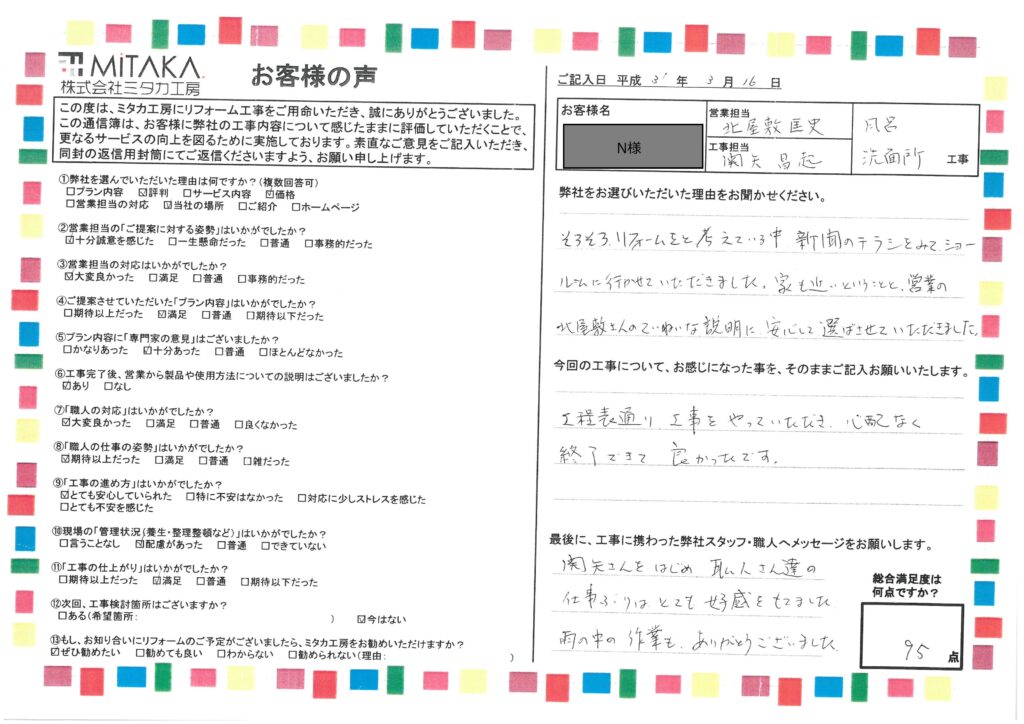 MiTAKA
株式会社ミタカ工房
お客様の声
この度は、ミタカ工房にリフォーム工事をご用命いただき、誠にありがとうございました。
この通信簿は、お客様に弊社の工事内容について感じたままに評価していただくことで、
更なるサービスの向上を図るために実施しております。素直なご意見をご記入いただき、
同封の返信用封筒にてご返信くださいますよう、お願い申し上げます。
①弊社を選んでいただいた理由は何ですか？(複数回答可)
□プラン内容 ☑評判 □サービス内容 ☑価格
□営業担当の対応 ☑当社の場所 □ご紹介 □ホームページ
②営業担当の「ご提案に対する姿勢」はいかがでしたか？
☑十分誠意を感じた □一生懸命だった □普通 □事務的だった
③営業担当の対応はいかがでしたか？
☑大変良かった □満足 □普通 □事務的だった
④ご提案させていただいた「プラン内容」はいかがでしたか？
□期待以上だった ☑満足 □普通 □期待以下だった
⑤プラン内容に「専門家の意見」はございましたか？
□かなりあった ☑十分あった □普通 □ほとんどなかった
⑥工事完了後、営業から製品や使用方法についての説明はございましたか？
☑あり □なし
⑦「職人の対応」はいかがでしたか？
☑大変良かった □満足 □普通 □良くなかった
⑧「職人の仕事の姿勢」はいかがでしたか？
☑期待以上だった □満足 □普通 □雑だった
⑨「工事の進め方」はいかがでしたか？
☑とても安心していられた □特に不安はなかった □対応に少しストレスを感じた
□とても不安を感じた
⑩現場の「管理状況(養生・整理整頓など)」はいかがでしたか？
□言うことなし ☑配慮があった □普通 □できていない
⑪「工事の仕上がり」はいかがでしたか？
□期待以上だった ☑満足 □普通 □期待以下だった
⑫次回、工事検討箇所はございますか？
□ある(希望箇所: ) ☑今はない
⑬もし、お知り合いにリフォームのご予定がございましたら、ミタカ工房をお勧めいただけますか？
☑ぜひ勧めたい □勧めても良い □わからない □勧められない(理由: )
ご記入日 平成 31 年 3 月 16 日
お客様名
N様
営業担当
北屋敷匡史
工事担当
関矢昌起
風呂
洗面所 工事
弊社をお選びいただいた理由をお聞かせください。
そろそろリフォームをと考えている中 新聞のチラシをみて、ショー
ルームに行かせていただきました。家も近いということと、営業の
北屋敷さんのていねいな説明に、安心して選ばさせていただきました。
今回の工事について、お感じになった事を、そのままご記入お願いいたします。
工程表通り 工事をやっていただき、心配なく
終了できて 良かったです。
最後に、工事に携わった弊社スタッフ・職人へメッセージをお願いします。
関矢さんをはじめ 職人さん達の
仕事ぶりは とても 好感をもてました
雨の中の 作業も、ありがとうございました
総合満足度は
何点ですか？
95 点